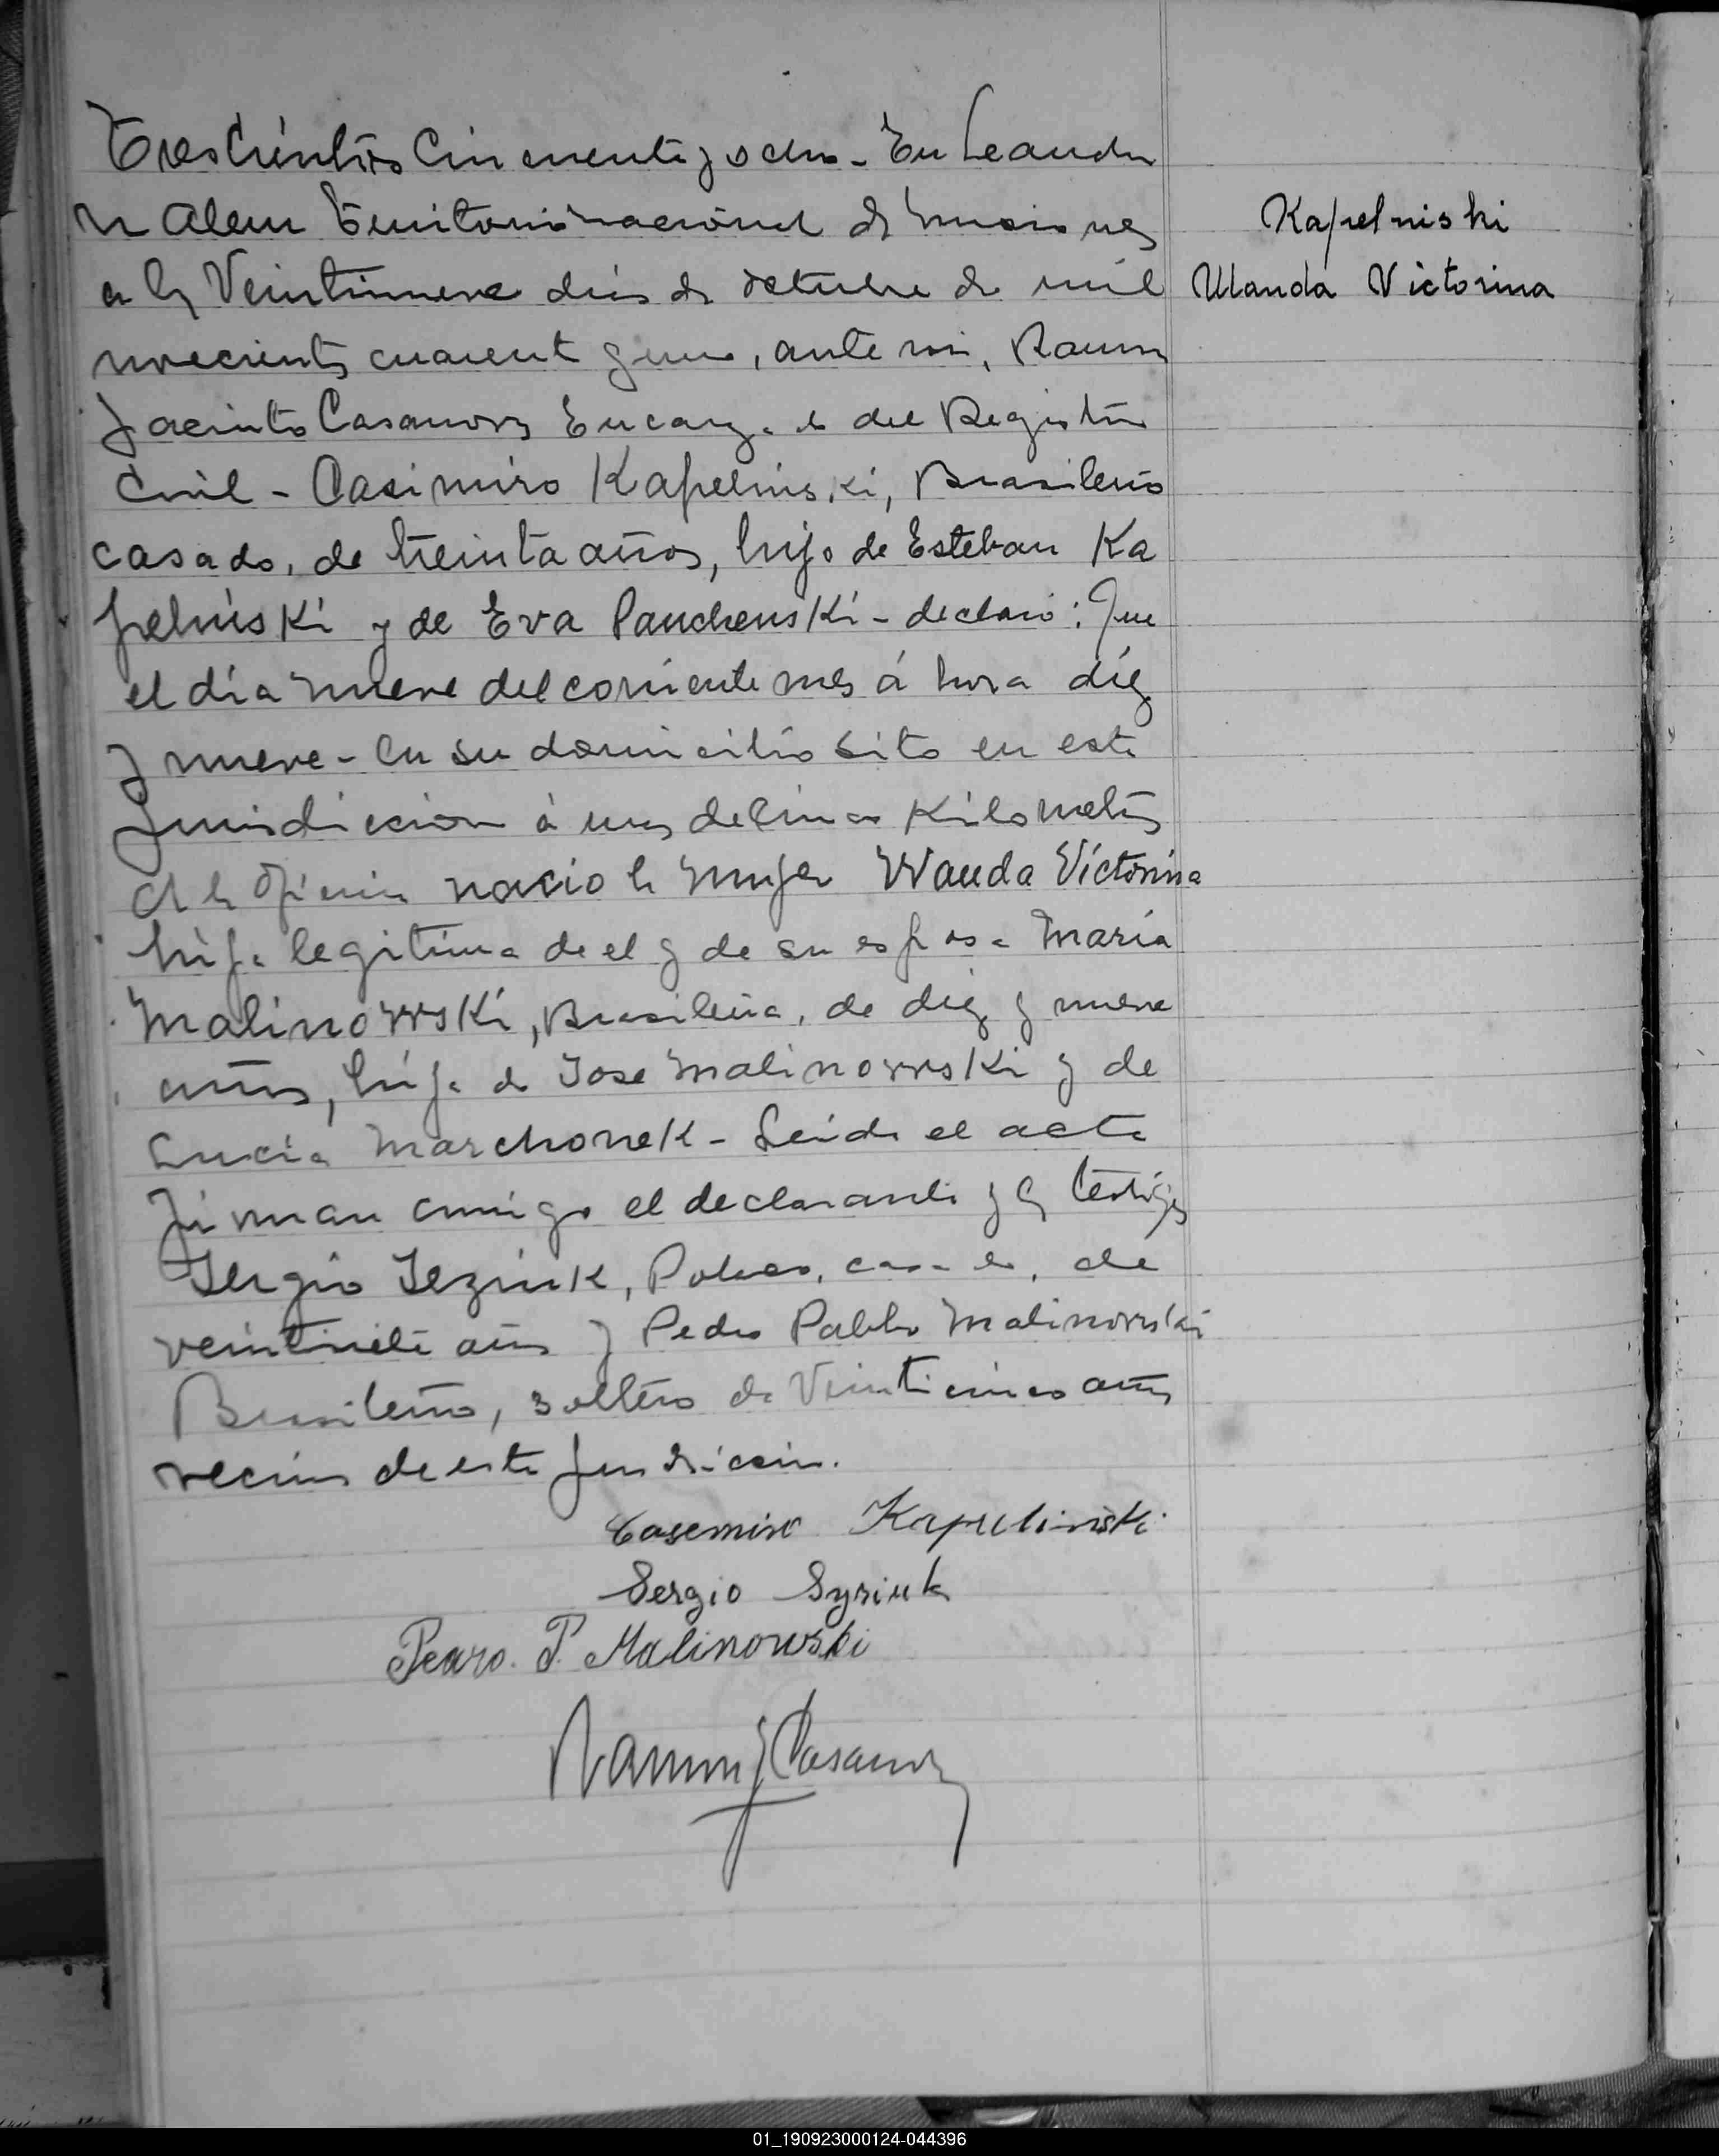 Trescientos Cincuenta y ocho - En Leandro
N Alem Territorio nacional de Misiones
a los Veintinueve dias de octubre de mil
novecientos cuarenta y uno, ante mi, Ramon
Jacinto Casanova Encargado del Registro
Civil - Casimiro Kapelniski, Brasileño
casado, de treinta años, hijo de Esteban Ka
pelniski y de Eva Panchenski - declaró: Que
el día nueve del corriente mes á hora diez
y nueve - en su domicilio sito en esta
Jurisdiccion á unos de Cinco Kilometros
de la oficina nacio la mujer Wanda Victorina
hija legitima de el y de su esposa María
Malinowski, Brasileña, de diez y nueve
años, hija de Jose Malinowski y de
Lucía Marchonek - Leida el acta
firman conmigo el declarante y los testigos
Sergio Seziuk, Polaco, casado, de
veintisiete años y Pedro Pablo Malinowski
Brasileño, soltero de Veinticinco años
vecinos de esta jurisdiccion.
Casemiro Kapelinski
Sergio Syziuk
Pedro. P. Malinowski
Ramon J Casanova
Kapelniski
Wanda Victorina
01_190923000124-044396